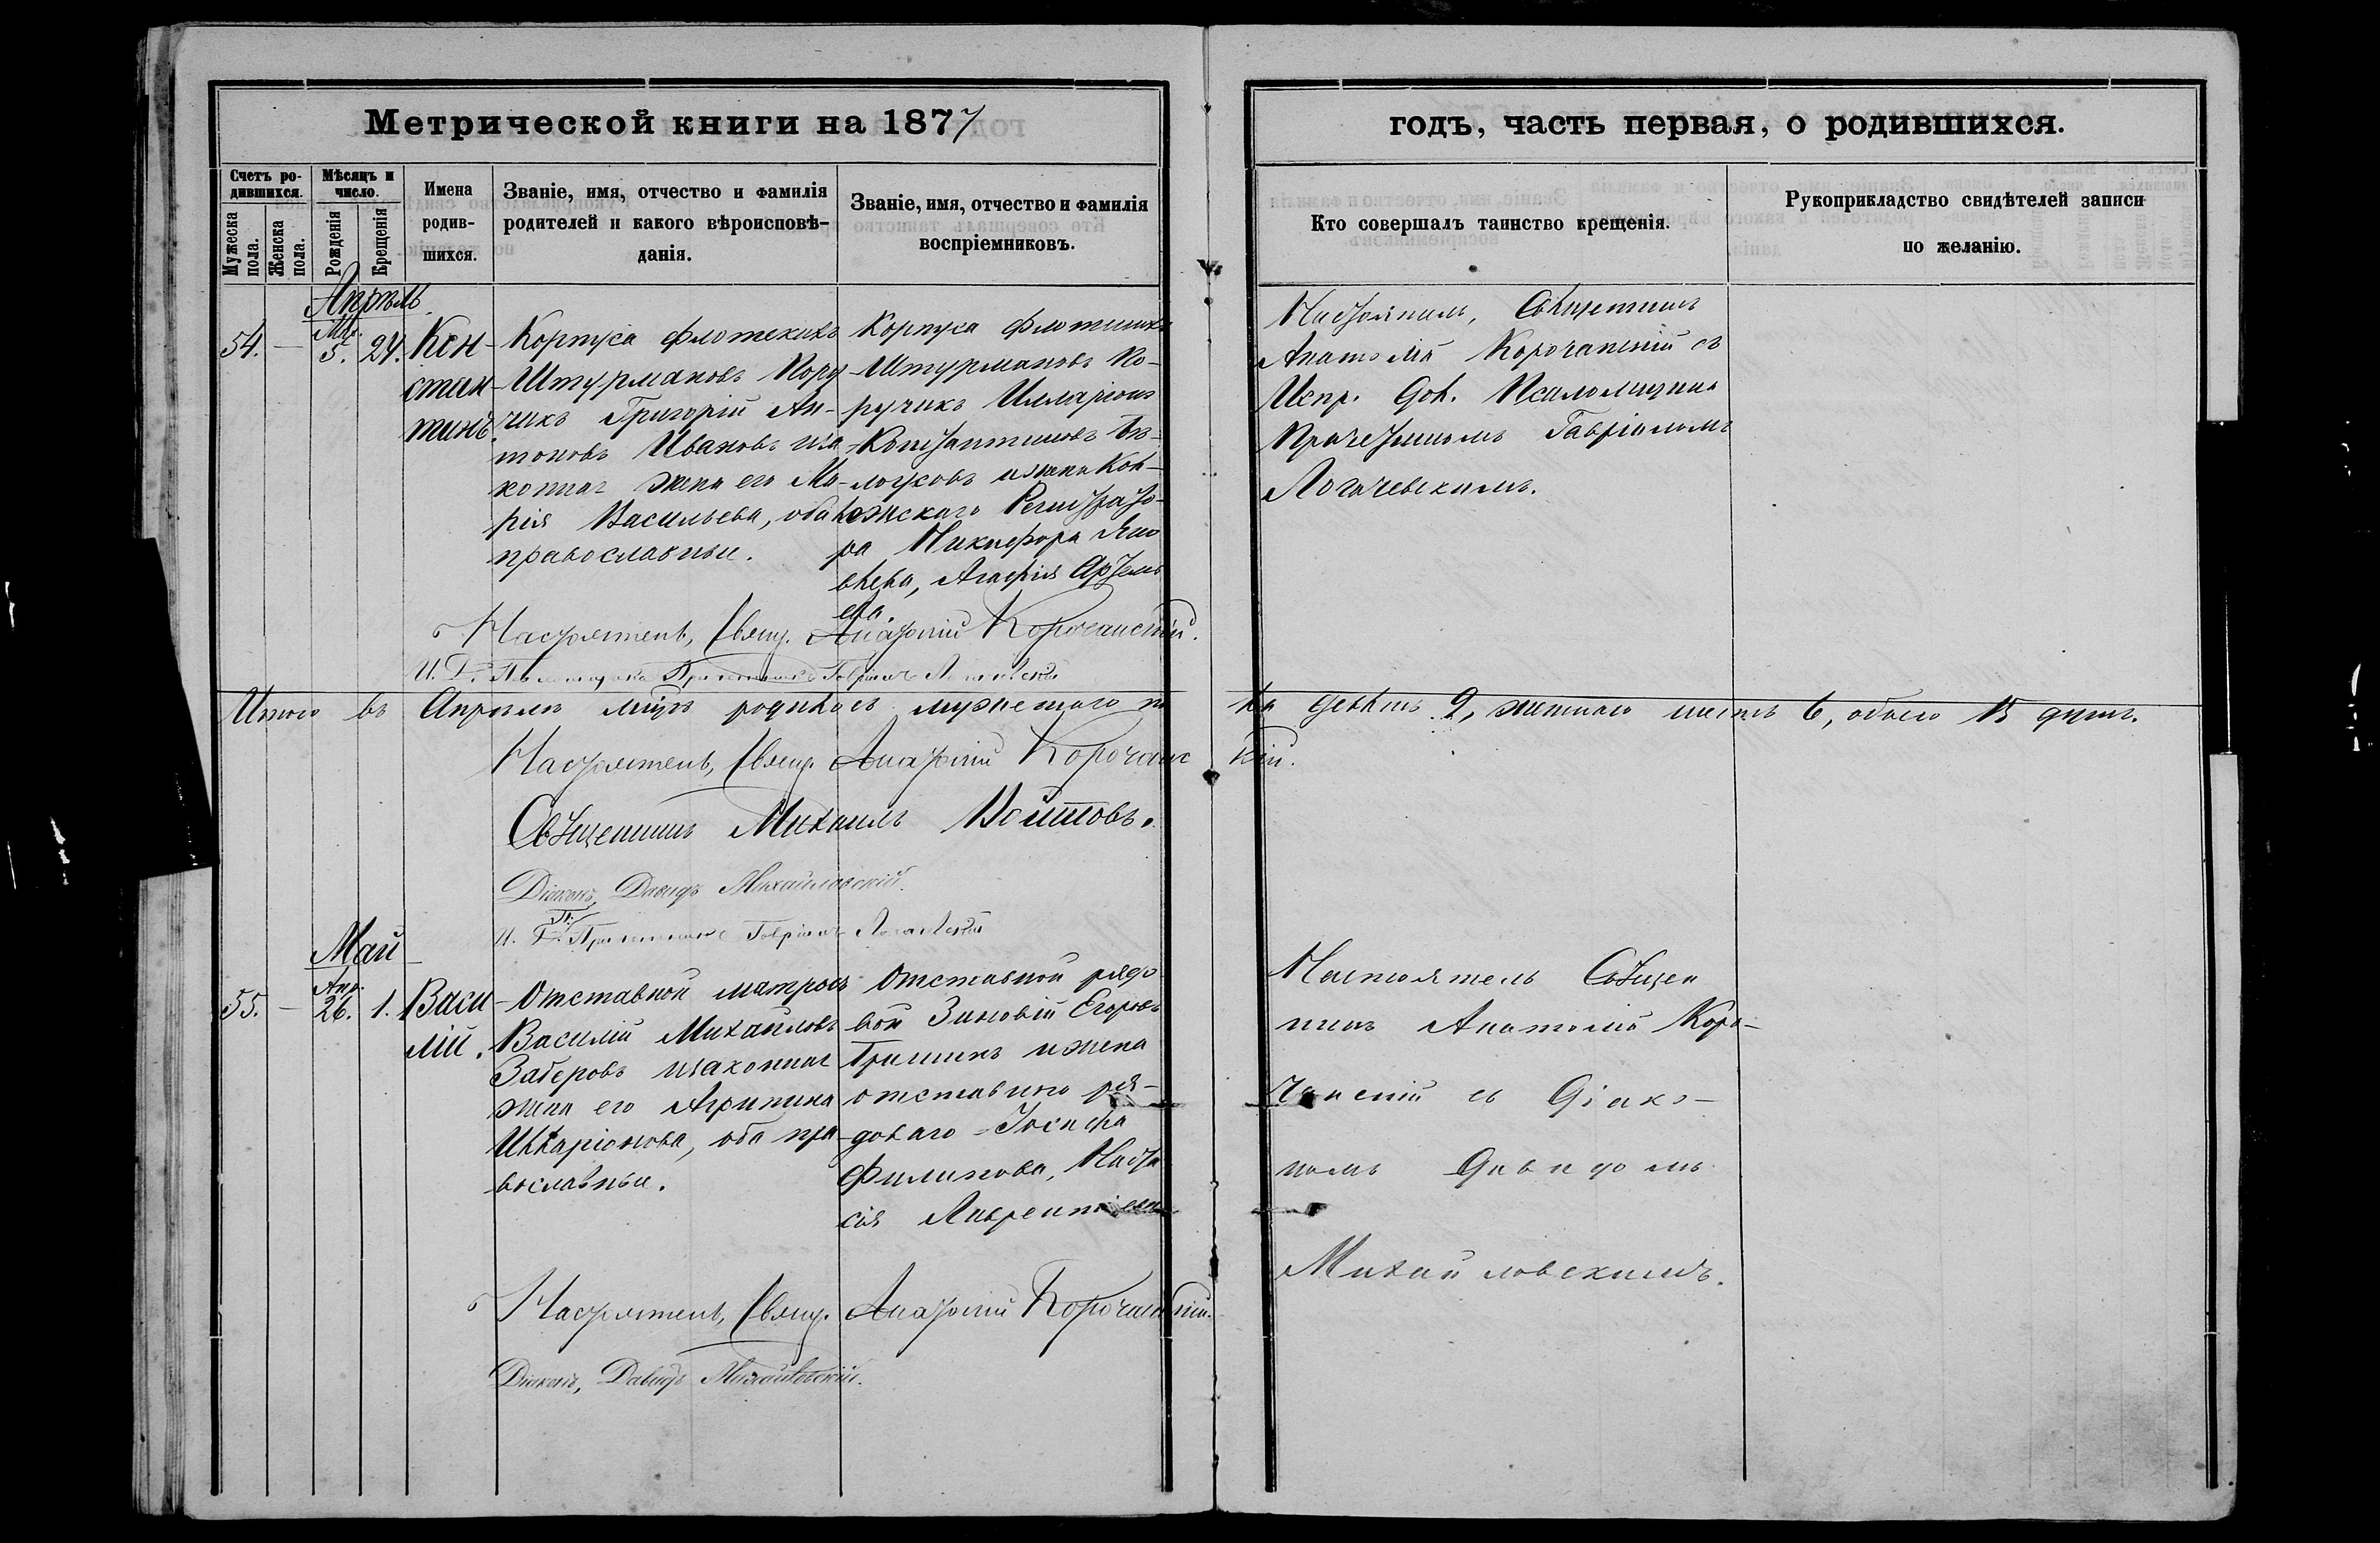 Метрической книги на 1877
годъ, часть первая, о родившихся.
Счетъ ро-
дившихся.
Мужеска
пола.
Женска
пола.
Мѣсяцъ и
число.
Рожденія
Крещенія
Имена
родив-
шихся.
Званіе, имя, отчество и фамилія
родителей и какого вѣроисповѣ-
данія.
Званіе, имя, отчество и фамилія
воспріемниковъ.
Кто совершалъ таинство крещенія.
Рукоприкладство свидѣтелей записи
по желанію.
Апрѣль
54.
—
5.
24.
Кон-
стан-
тинъ.
Корпуса флотскихъ
Штурмановъ Пору-
чикъ Григорій Ан-
тоновъ Ивановъ иза-
конная жена его Ма-
рія Васильева, оба
православные.
Корпуса флотскихъ
Штурмановъ По-
ручикъ Илларіонъ
Константиновъ
и жена Кол-
лежскаго Регистрато-
ра Никифора
Агафія Артемь
ева.
Настоятель, Священникъ
Анатолій Корочанскій съ
Испр. Дол. Псаломщика
Причетникомъ Гавріиломъ
Логачевскимъ.
Настоятель, Свящ. Анатолій Корочанскій.
И. Д. Псаломщика Причетникъ Гавріилъ Логачевскій
Итого въ Апрѣлѣ мцѣ родилось мужескаго по
ла девять 9, женскаго шесть 6, обоего 15 душъ.
Настоятель, Свящ. Анатолій Корочанс
кій.
Священникъ Михаилъ Войтовъ.
Діаконъ, Давидъ Михайловскій.
И. Д. Причетникъ Гавріилъ Логачевскій
Май
55.
—
Апр.
26.
1.
Васи-
лій.
Отставной матросъ
Василій Михайловъ
Заберовъ изаконная
жена его Агрипина
Илларіонова, оба пра-
вославные.
Отставной рядо-
вой Зиновій Егоровъ
Гришинъ и жена
отставного ря-
доваго Іосифа
Филипова, Наста
сія Лаврентіева
Настоятель Священ
никъ Анатолій Коро-
чанскій съ Діако-
номъ Давидомъ
Михайловскимъ.
Настоятель, Свящ. Анатолій Корочанскій.
Діаконъ, Давидъ Михайловскій.